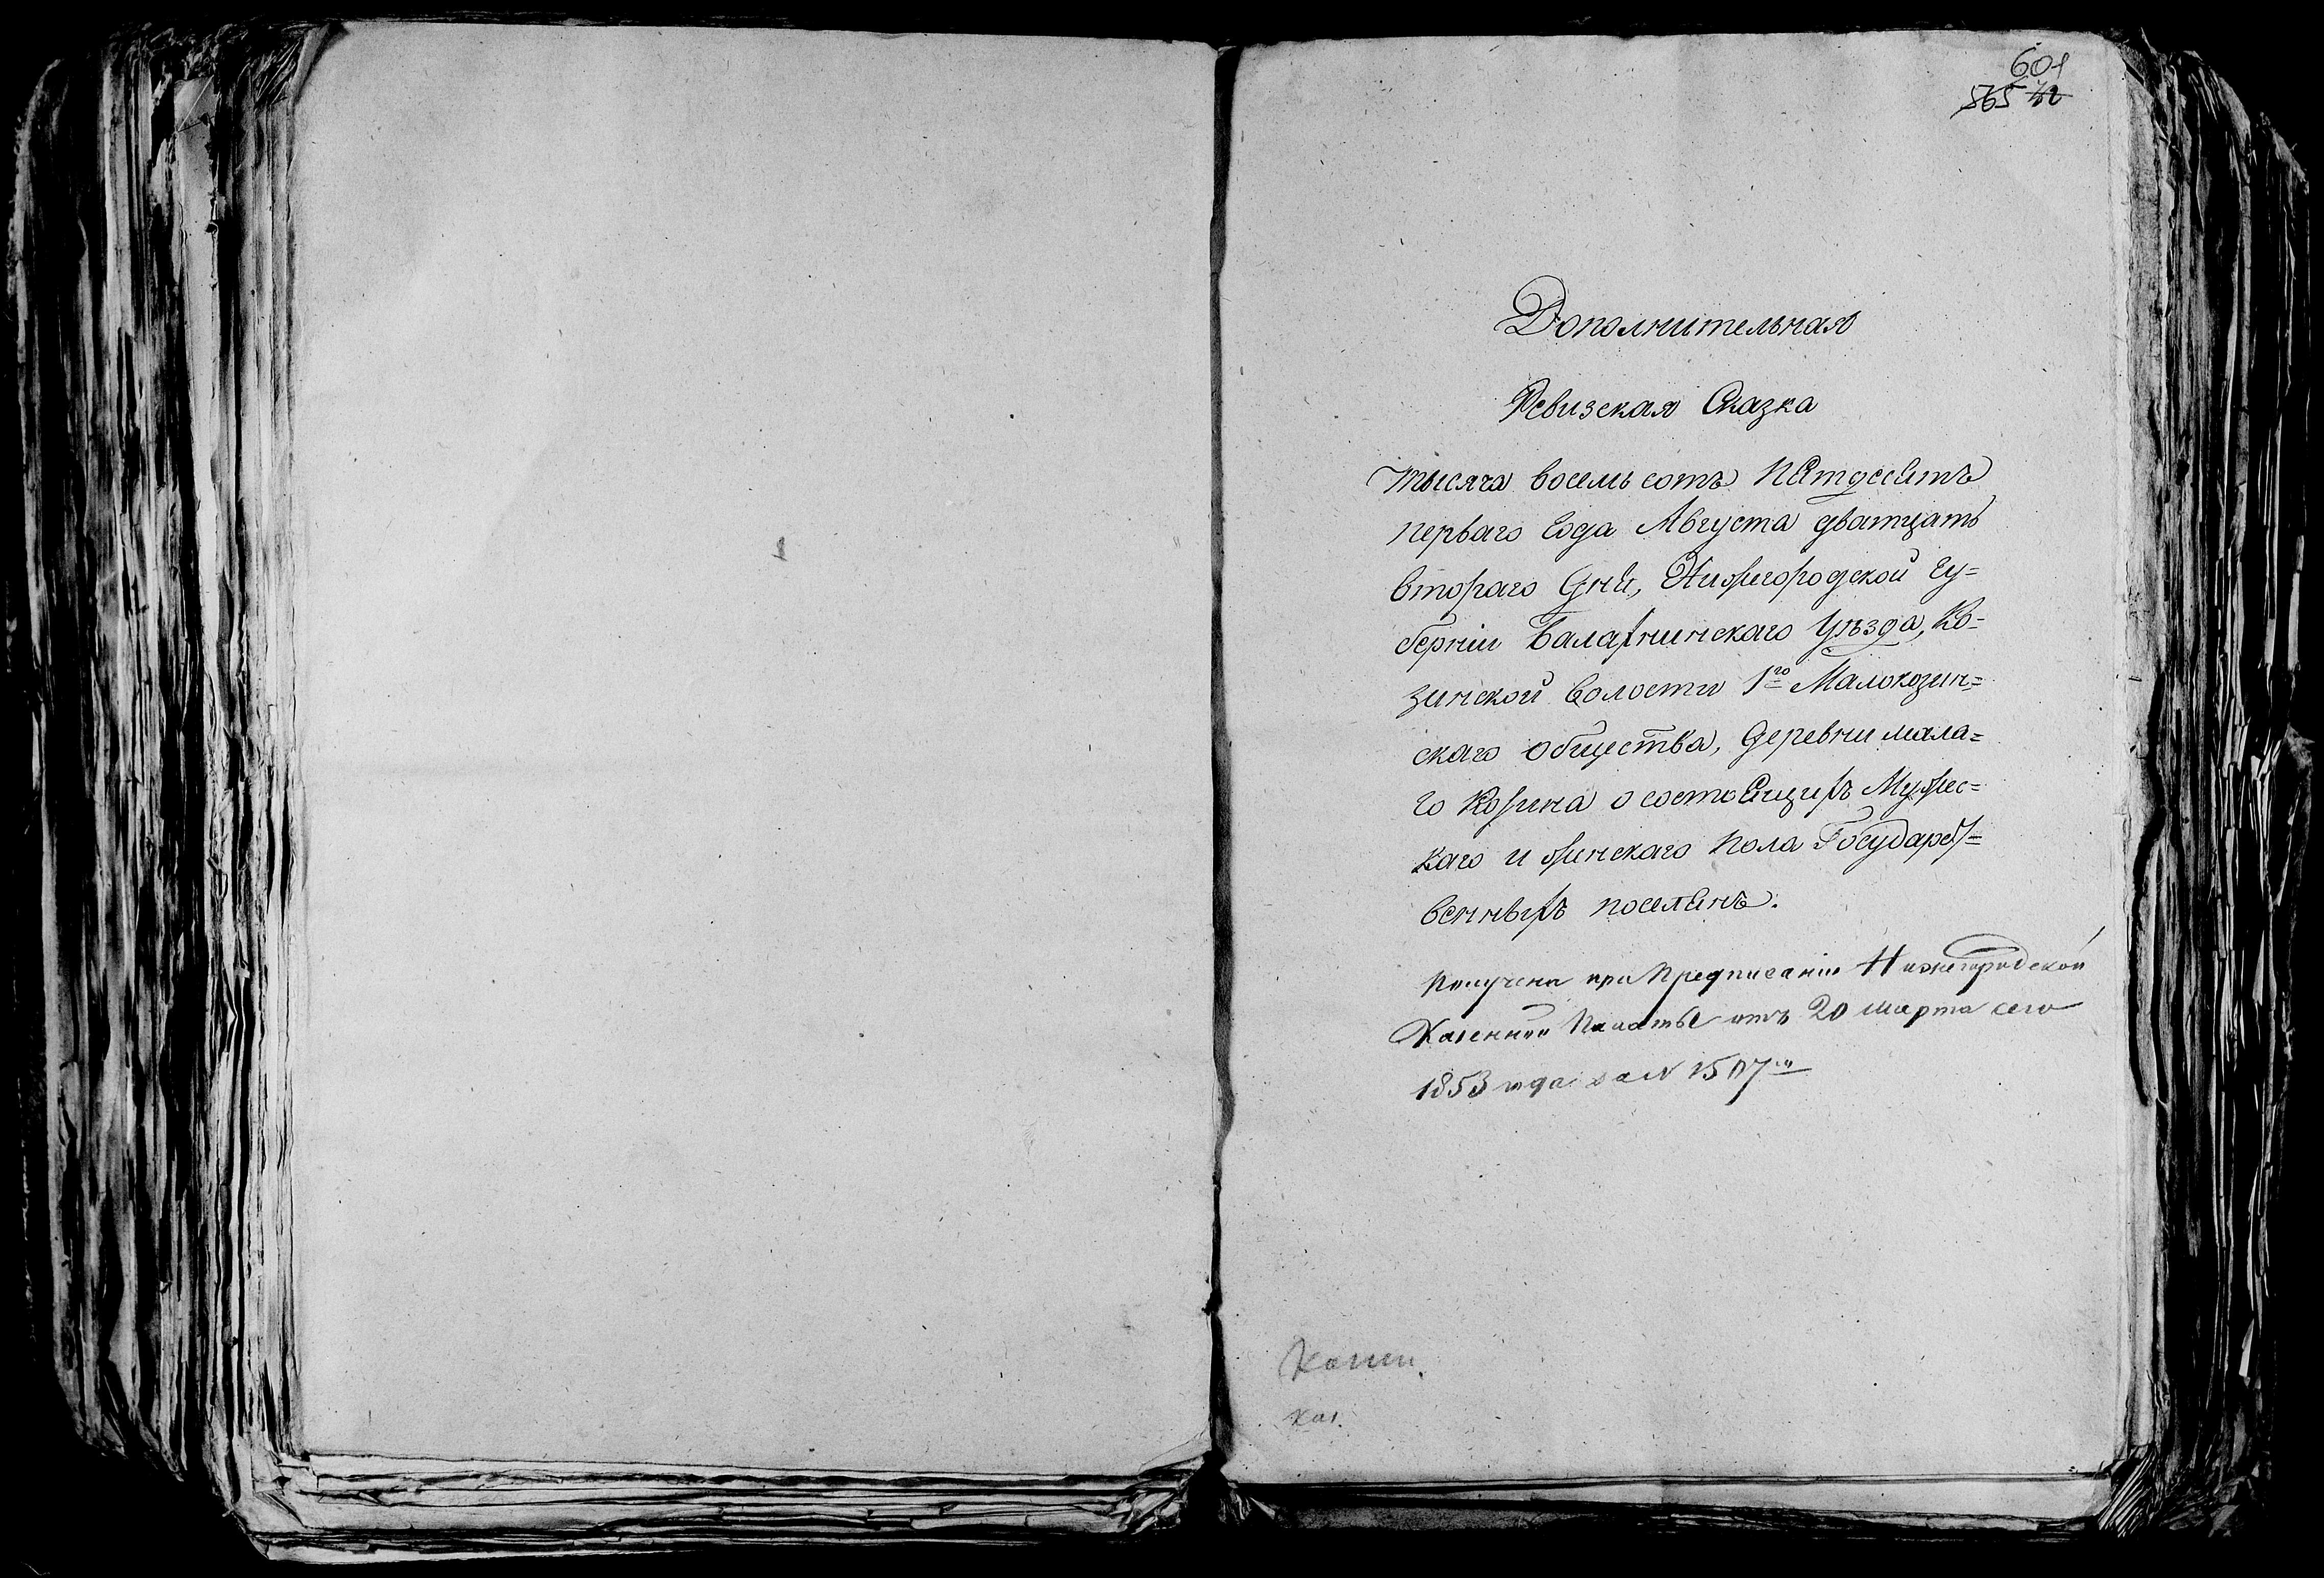 601
565 42
Дополнительная
Ревизская Сказка
Тысяча восемь сотъ пятдесятъ
перваго года Августа дватцать
втораго дня, Нижегородской гу=
берніи Балахнинскаго Уѣзда, Ко-
зинской волости 1го Малокозин=
скаго общества, деревни мала=
го Козина о состоящихъ Мужес=
каго и женскаго пола Государст=
венныхъ поселянъ.
Получена при Предписаніи Нижегородской
Казенной Палаты отъ 20 марта сего
1853 года за N